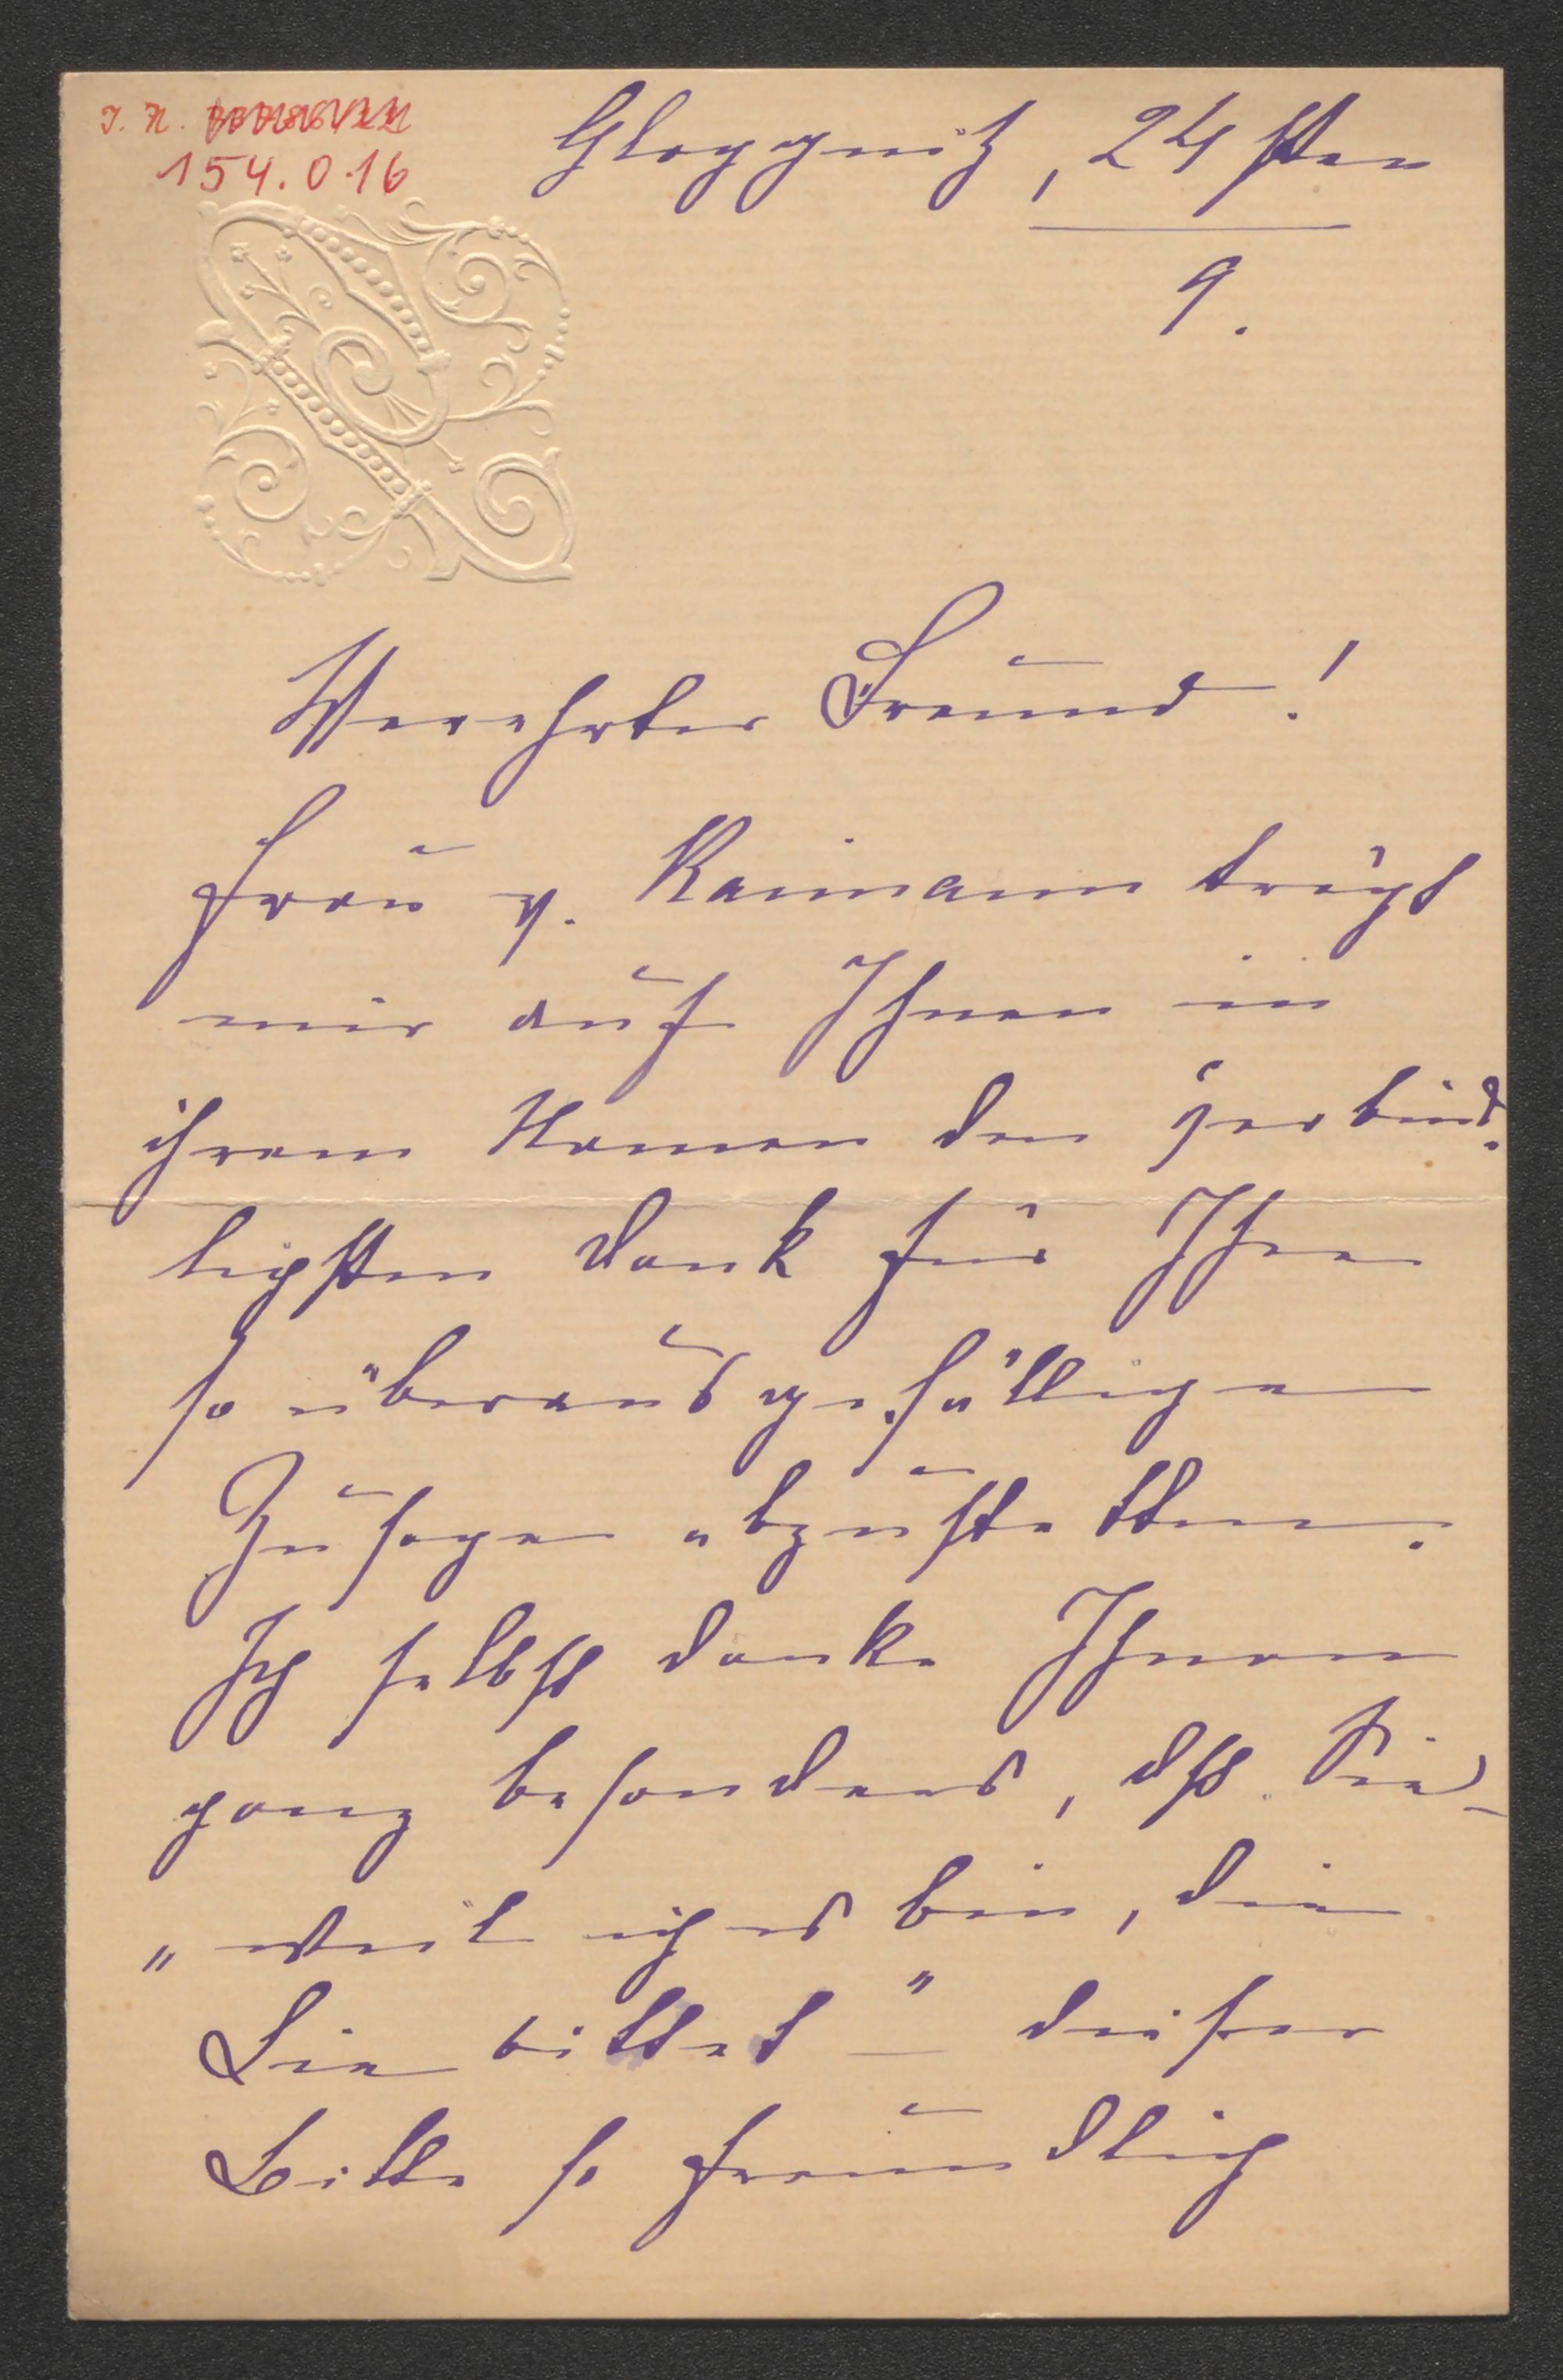 J. N.
154.016
Gloggnitz, 24sten
9.
Verehrter Freund!
Frau v. Raimann trägt
mir auf Ihnen in
ihrem Namen den verbind-
lichsten Dank für Ihre
so überaus gefällige
Zusage abzustatten.
Ich selbst danke Ihnen
ganz besonders, dß Sie -
"weil ich es bin, die
Sie bittet" – dieser
Bitte so freundlich